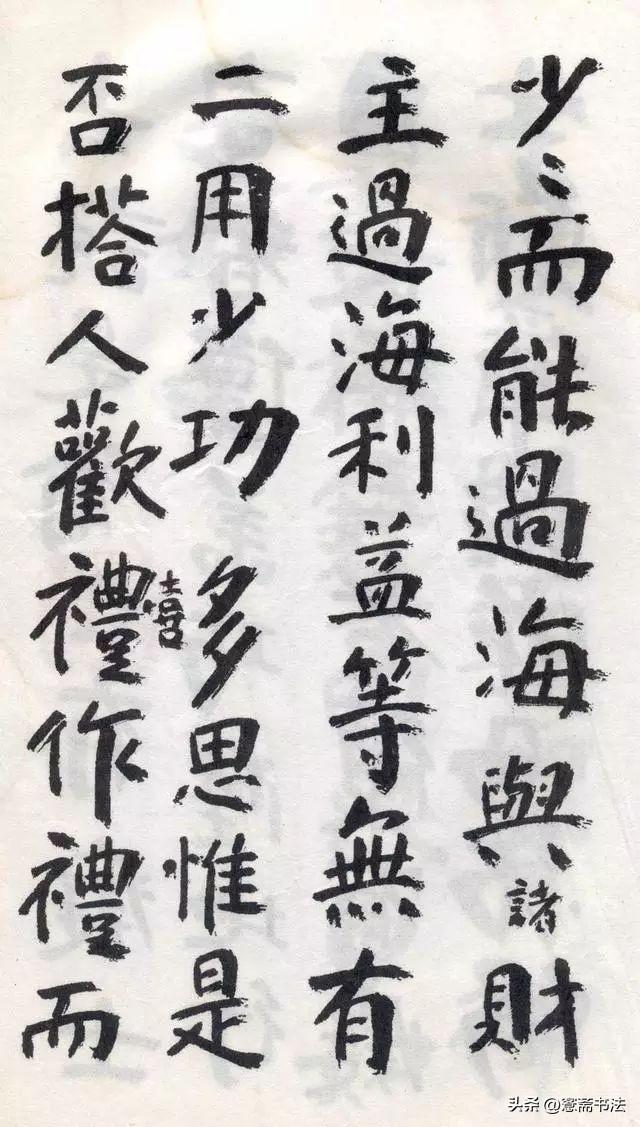 少〻而能過海與諸財
主過海利益等無有
二用少功多思惟是
否搭人歡禮喜作禮而
头条@愙斋书法